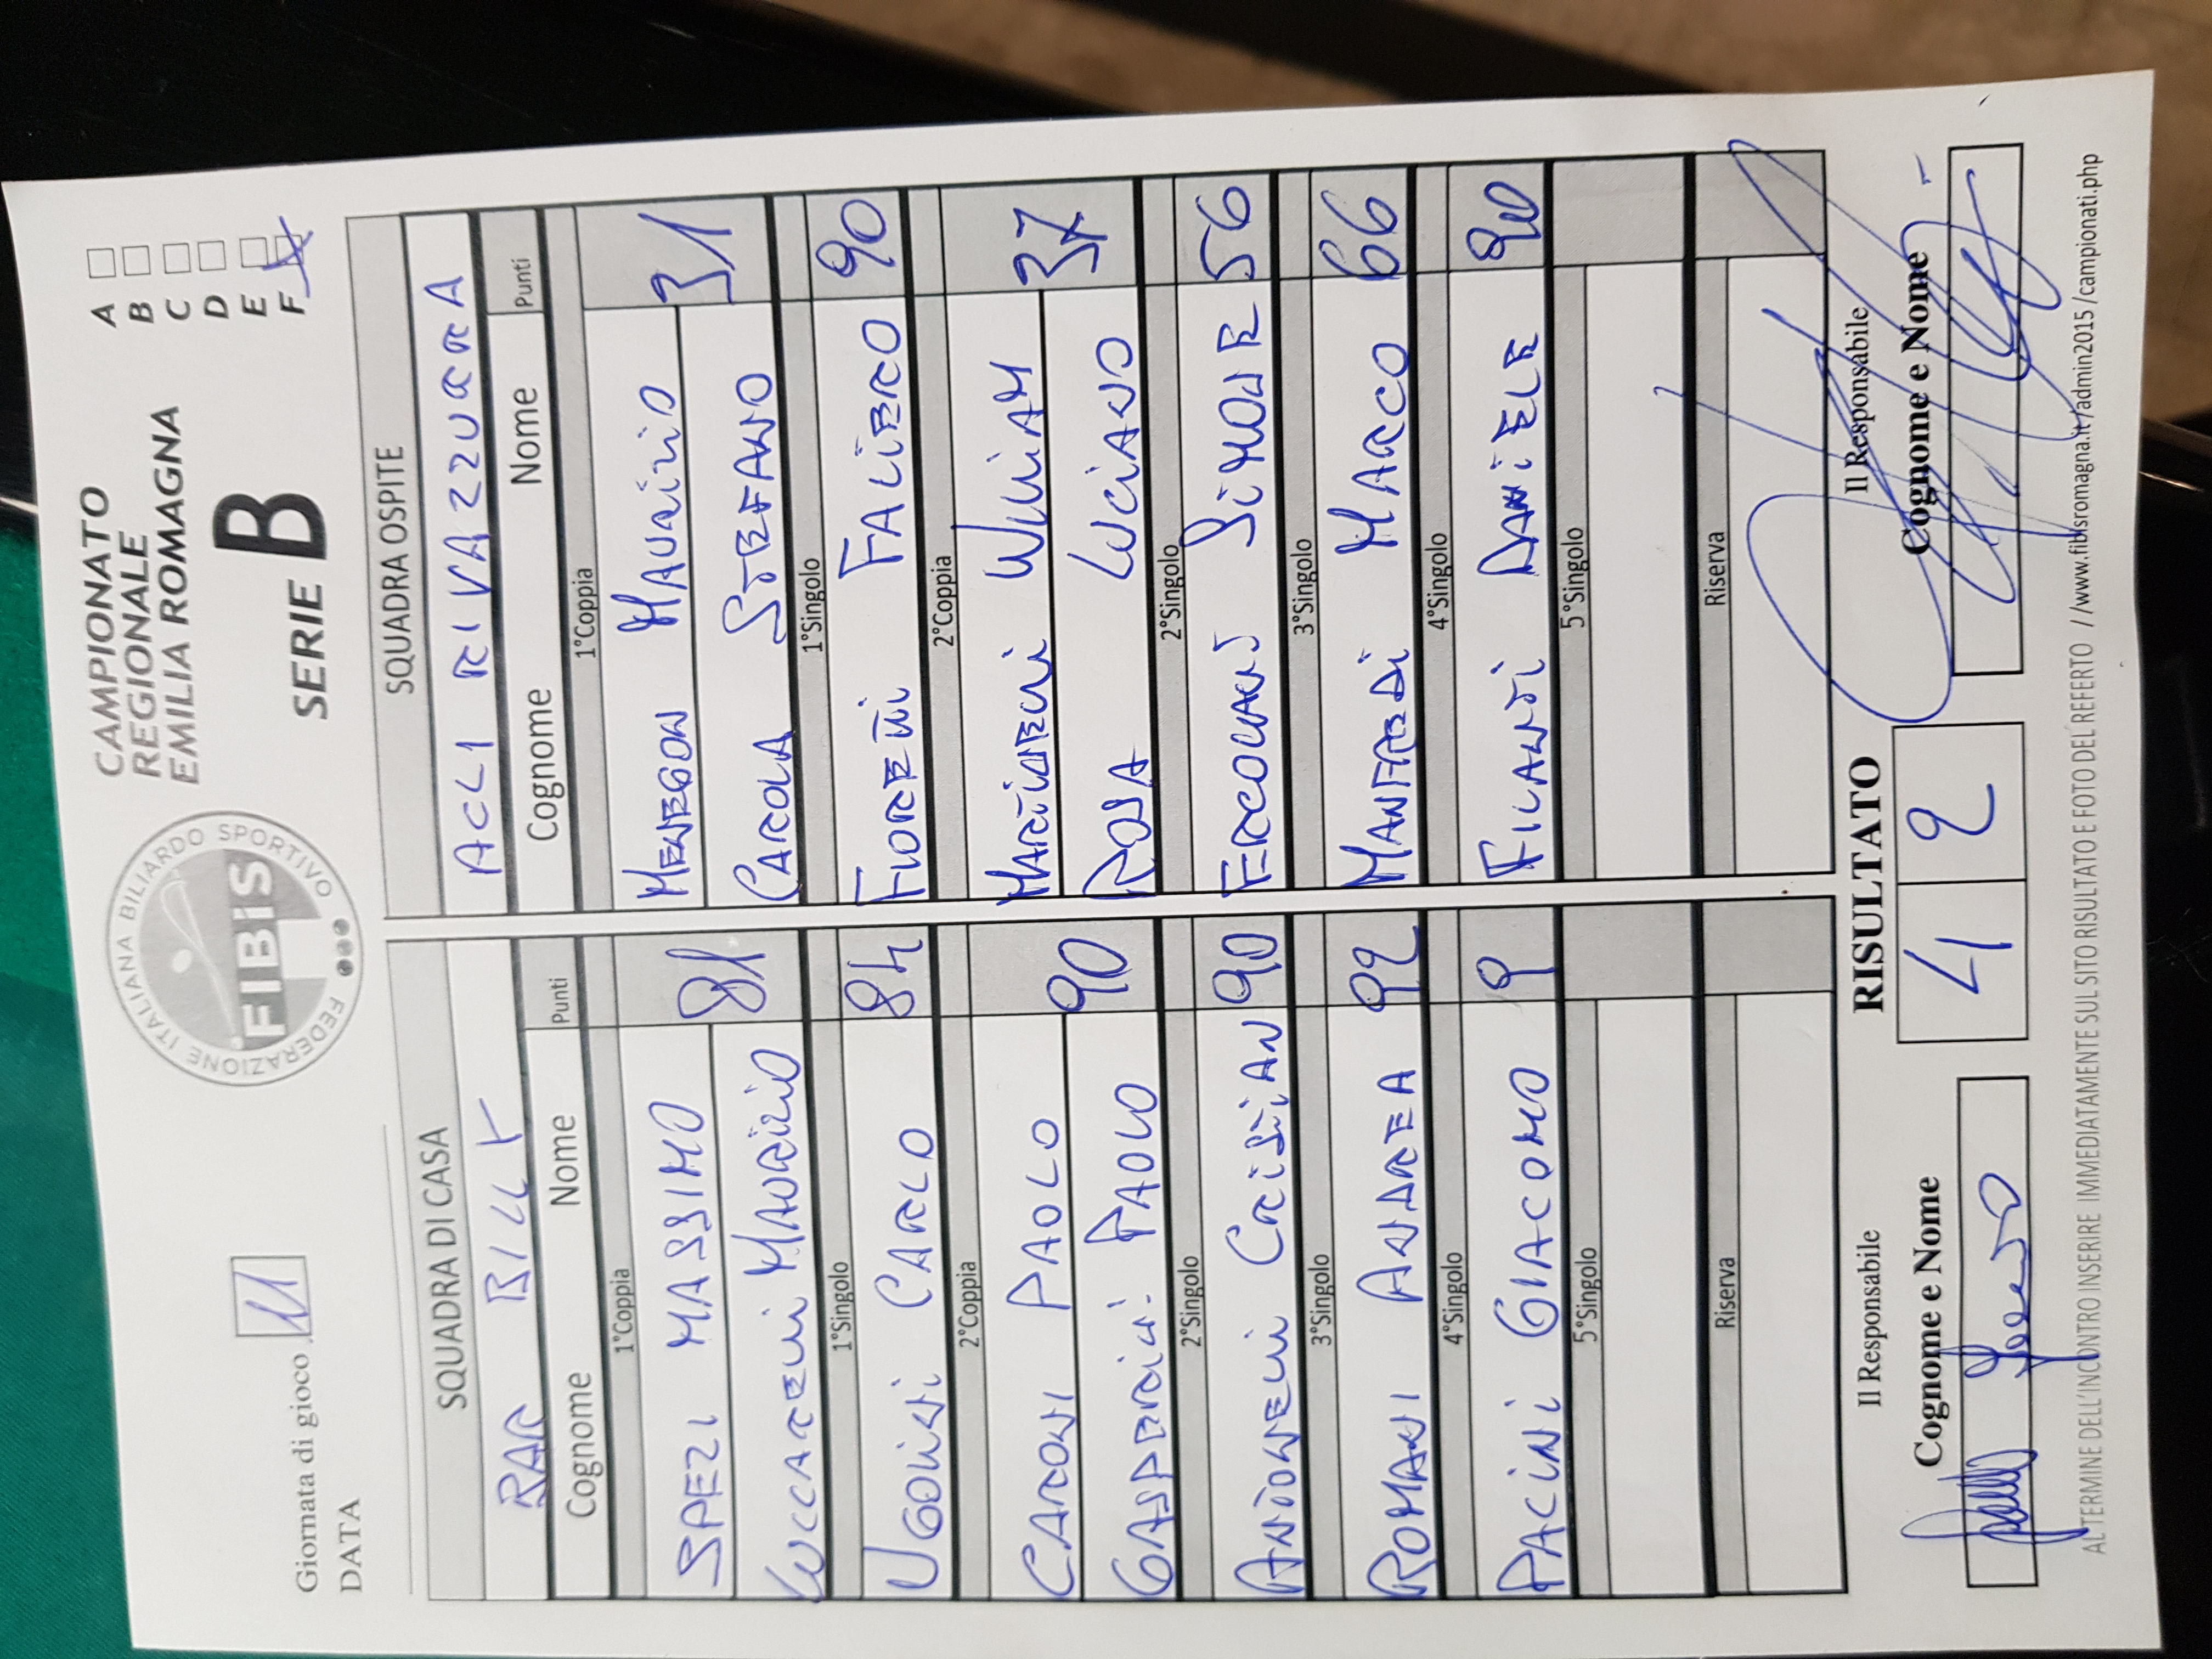 FEDERAZIONE ITALIANA BILIARDO SPORTIVO
FIBiS
CAMPIONATO
REGIONALE
EMILIA ROMAGNA
SERIE B
A
B
C
D
E
F
Giornata di gioco 11
DATA
SQUADRA DI CASA
BAR BILLY
Cognome Nome Punti
1°Coppia
SPEZI MASSIMO
LUCCARELLI MAURIZIO 81
1°Singolo
UGOLINI CARLO 84
2°Coppia
CARONI PAOLO
GASPERINI PAOLO 90
2°Singolo
ANTONELLI CRISTIAN 90
3°Singolo
ROMANI ANDREA 92
4°Singolo
PACINI GIACOMO 9
5°Singolo
Riserva
SQUADRA OSPITE
ACLI RIVAZZURRA
Cognome Nome Punti
1°Coppia
MENEGON MAURIZIO
CAROLA STEFANO 31
1°Singolo
FIORETTI FALIERO 90
2°Coppia
MARTINELLI WILLIAM
ROSA LUCIANO 37
2°Singolo
ERCOLANI SIMONE 56
3°Singolo
MANFREDI MARCO 66
4°Singolo
FILANTI DANIELE 90
5°Singolo
Riserva
Il Responsabile
Cognome e Nome
RISULTATO
4 2
Il Responsabile
Cognome e Nome
AL TERMINE DELL'INCONTRO INSERIRE IMMEDIATAMENTE SUL SITO RISULTATO E FOTO DEL REFERTO //www.fibisromagna.it/admin2015/campionati.php